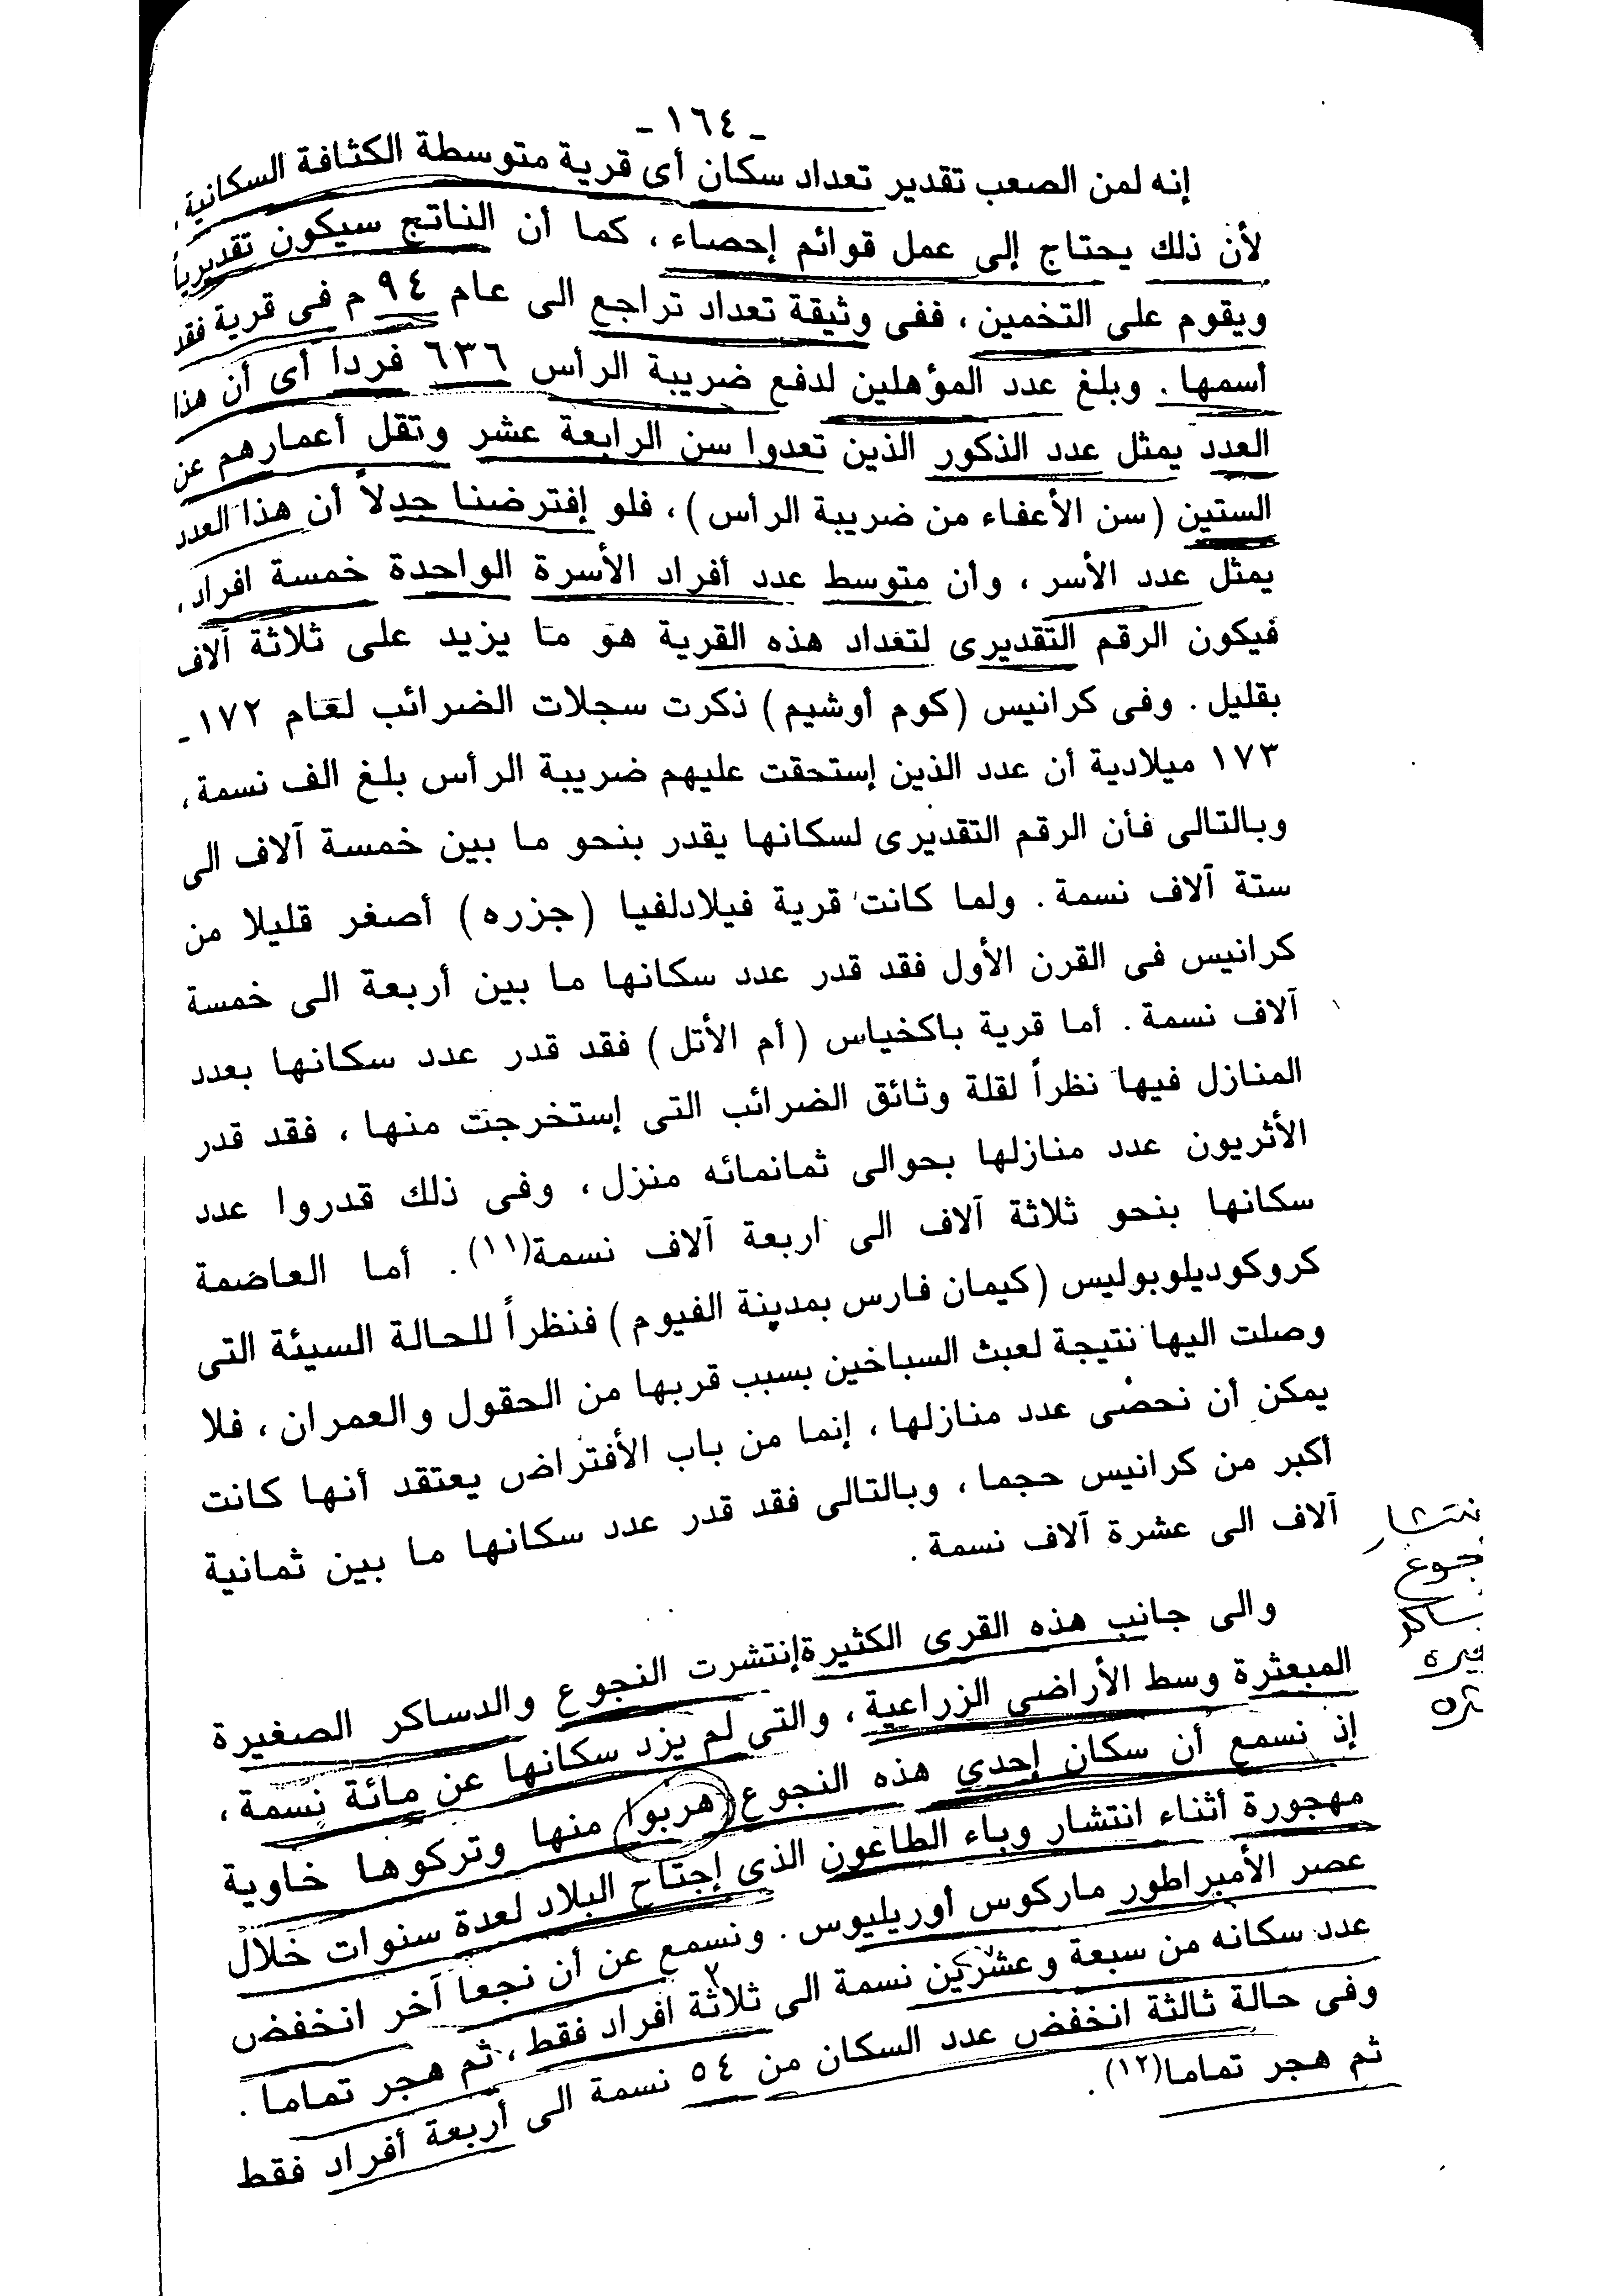 ـ ١٦٤ ـ
إنه لمن الصعب تقدير تعداد سكان أى قرية متوسطة الكثافة السكانية ،
لأن ذلك يحتاج إلى عمل قوائم إحصاء ، كما أن الناتج سيكون تقديرياً
ويقوم على التخمين ، ففى وثيقة تعداد تراجع الى عام ٩٤ م فى قرية فقد
أسمها . وبلغ عدد المؤهلين لدفع ضريبة الرأس ٦٣٦ فردا أى أن هذا
العدد يمثل عدد الذكور الذين تعدوا سن الرابعة عشر وتقل أعمارهم عن
الستين (سن الأعفاء من ضريبة الرأس) ، فلو إفترضنا جدلاً أن هذا العدد
يمثل عدد الأسر ، وأن متوسط عدد أفراد الأسرة الواحدة خمسة افراد ،
فيكون الرقم التقديرى لتعداد هذه القرية هو ما يزيد على ثلاثة آلاف
بقليل . وفى كرانيس (كوم أوشيم) ذكرت سجلات الضرائب لعام ١٧٢ ـ
١٧٣ ميلادية أن عدد الذين إستحقت عليهم ضريبة الرأس بلغ الف نسمة ،
وبالتالى فأن الرقم التقديرى لسكانها يقدر بنحو ما بين خمسة آلاف الى
ستة آلاف نسمة . ولما كانت قرية فيلادلفيا (جزره) أصغر قليلا من
كرانيس فى القرن الأول فقد قدر عدد سكانها ما بين أربعة الى خمسة
آلاف نسمة . أما قرية باكخياس (أم الأتل) فقد قدر عدد سكانها بعدد
المنازل فيها نظراً لقلة وثائق الضرائب التى إستخرجت منها ، فقد قدر
الأثريون عدد منازلها بحوالى ثمانمائه منزل ، وفى ذلك قدروا عدد
سكانها بنحو ثلاثة آلاف الى اربعة آلاف نسمة(١١) . أما العاضمة
كروكوديلوبوليس (كيمان فارس بمدينة الفيوم) فنظراً للحالة السيئة التى
وصلت اليها نتيجة لعبث السباخين بسبب قربها من الحقول والعمران ، فلا
يمكن أن نحصى عدد منازلها ، إنما من باب الأفتراض يعتقد أنها كانت
أكبر من كرانيس حجما ، وبالتالى فقد قدر عدد سكانها ما بين ثمانية
آلاف الى عشرة آلاف نسمة .
والى جانب هذه القرى الكثيرة إنتشرت النجوع والدساكر الصغيرة
المبعثرة وسط الأراضى الزراعية ، والتى لم يزد سكانها عن مائة نسمة ،
إذ نسمع أن سكان إحدى هذه النجوع هربوا منها وتركوها خاوية
مهجورة أثناء انتشار وباء الطاعون الذى إجتاح البلاد لعدة سنوات خلال
عصر الأمبراطور ماركوس أوريليوس . ونسمع عن أن نجعا آخر انخفض
عدد سكانه من سبعة وعشرين نسمة الى ثلاثة افراد فقط ، ثم هجر تماما .
وفى حالة ثالثة انخفض عدد السكان من ٥٤ نسمة الى أربعة أفراد فقط
ثم هجر تماما(١٢) .